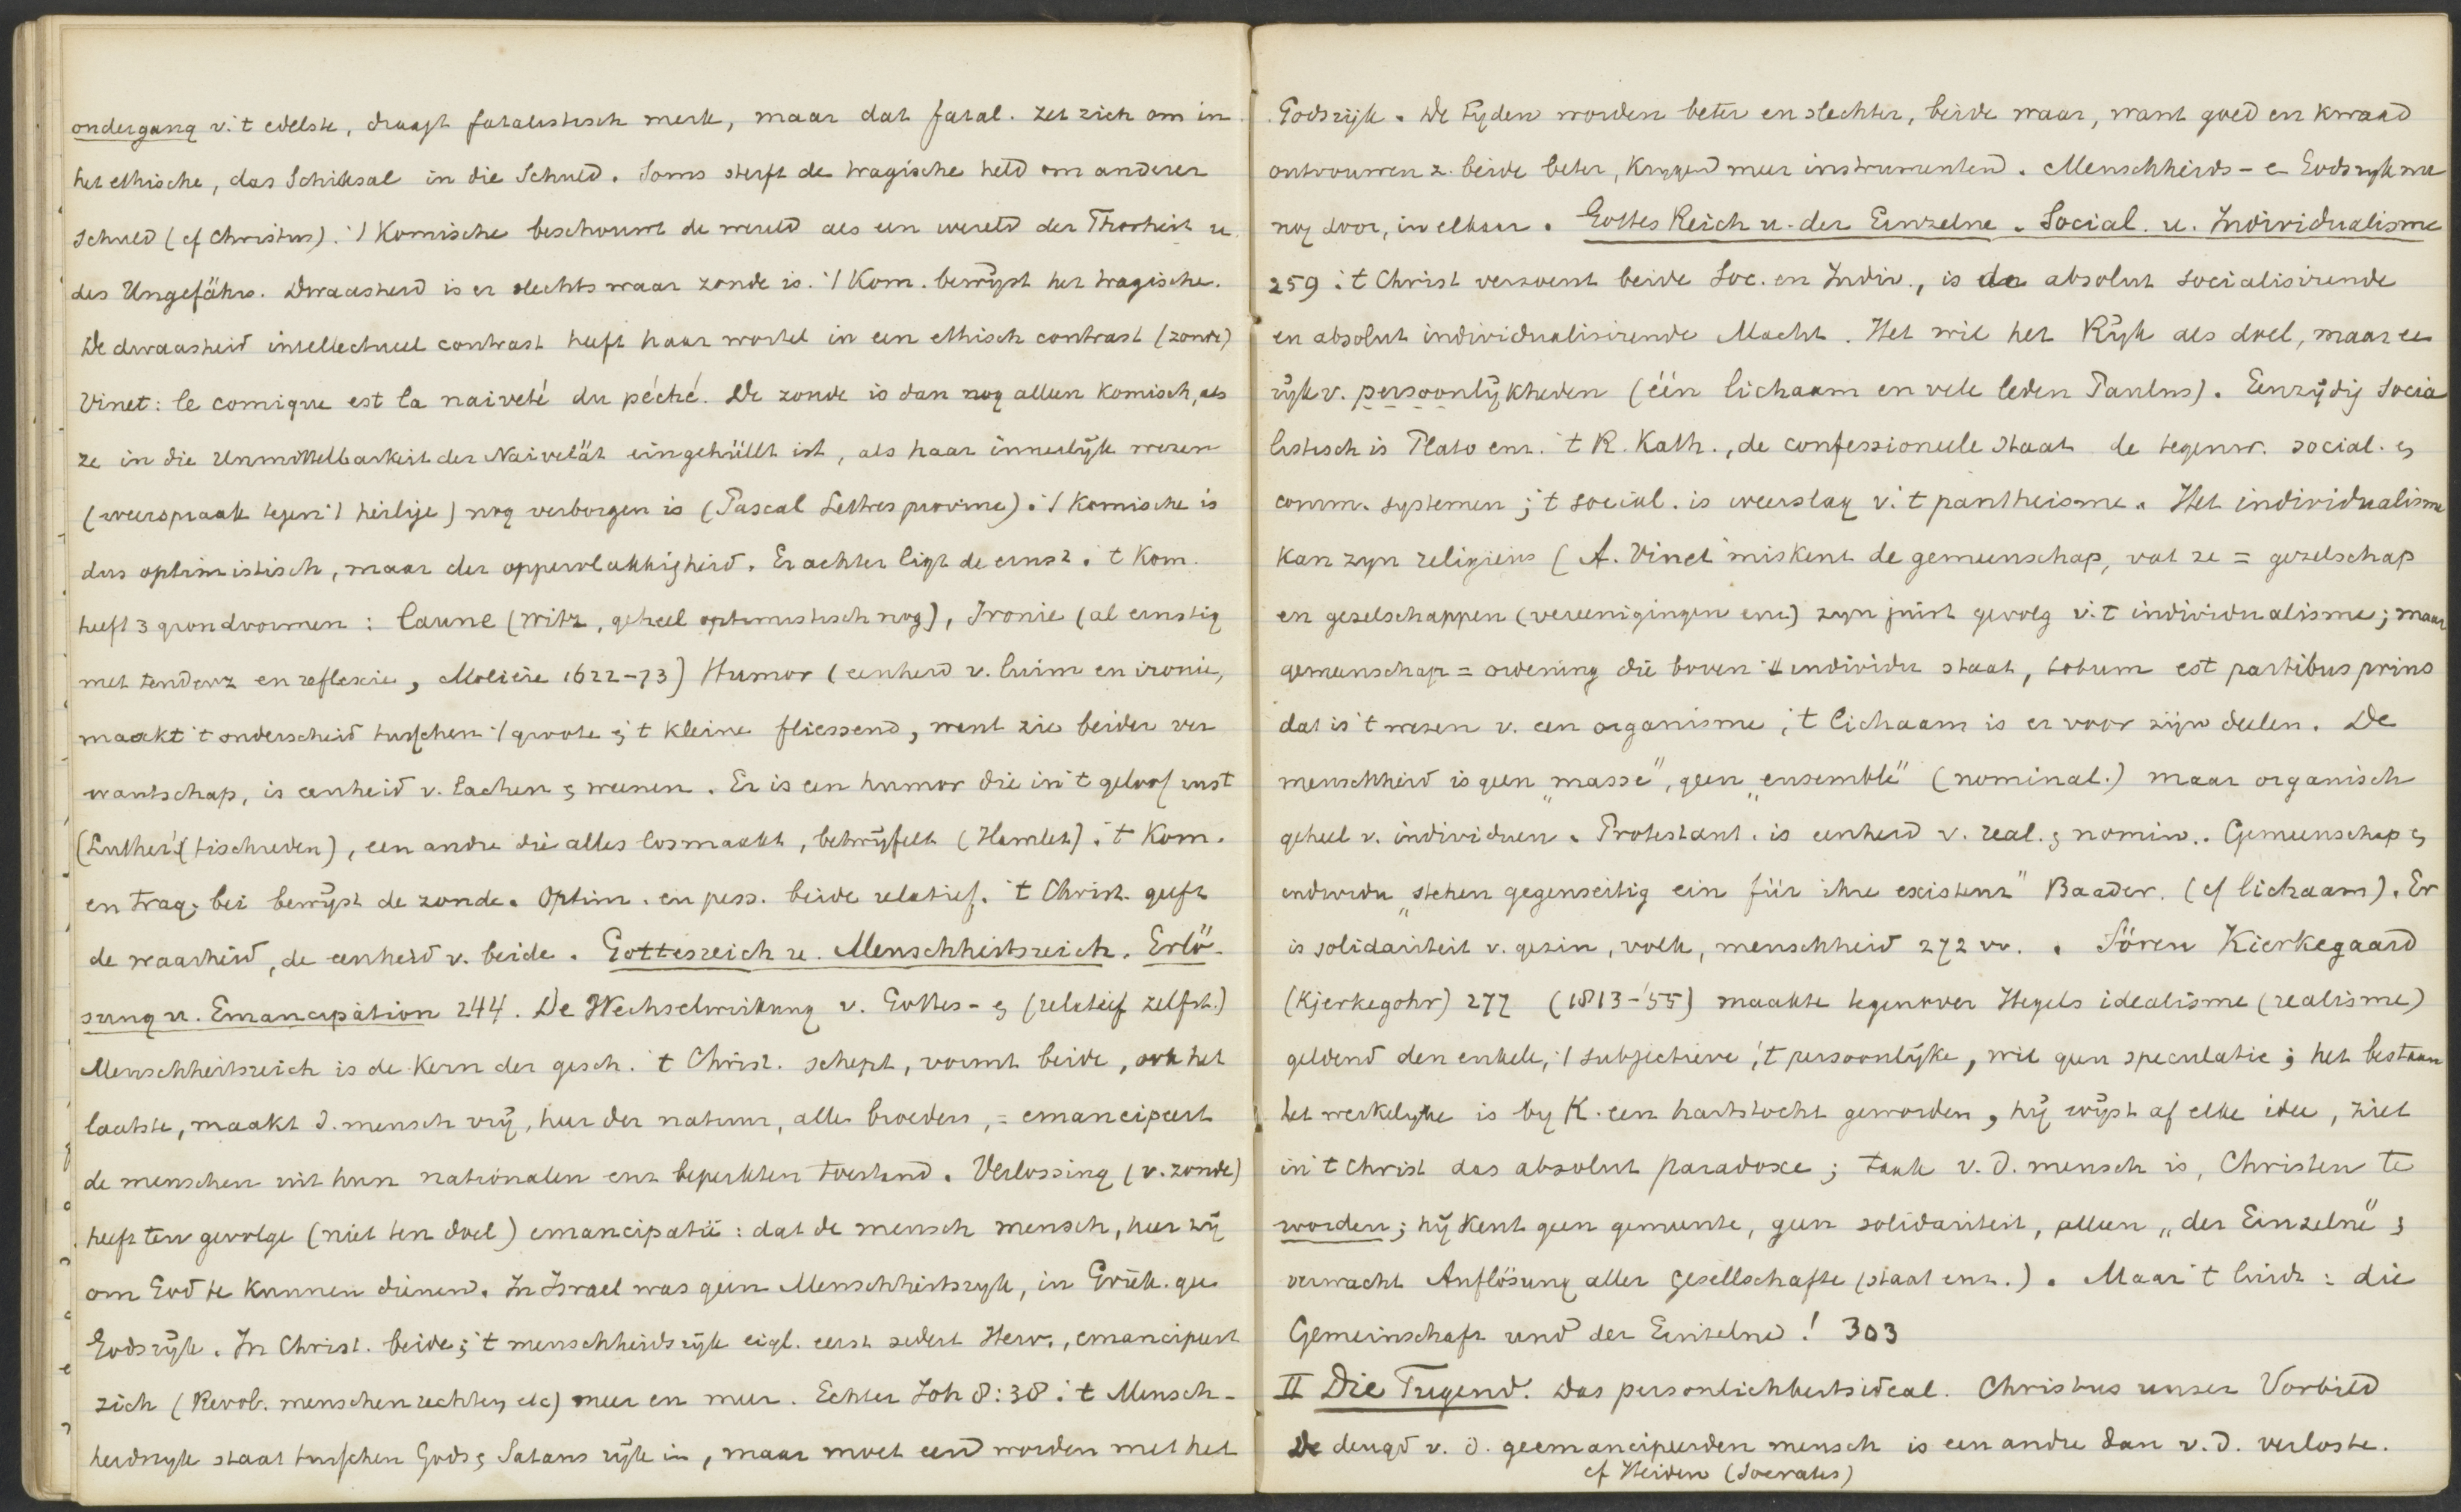 ondergang v. 't edelste, draagt fatalistisch merk, maar dat fatal. zet zich om in
het ethische, das Schiksal in die Schuld. Soms sterft de tragische held om anderer
schuld (cf Christus). 't Komische beschouwt de wereld als een wereld der Thorheit u.
des Ungefährs. Dwaasheid is er slechts waar zonde is. 't Kom. bewijst het tragische.
De dwaasheid intellectueel contrast heeft haar wortel in een ethisch contrast (zonde)
Vinet: le comique est la naiveté du péché. De zonde is dan nog alleen komisch, als
ze in die Unmittelbarkeit der Naivetät eingehüllt ist, als haar innerlijk wezen
(weerspraak tegen 't heilige) nog verborgen is (Pascal Lettres provinc). 't Komische is
dus optimistisch, maar der oppervlakkigheid. Er achter ligt de ernst. 't Kom.
heeft 3 grondvormen: laune (witz, geheel optimistisch nog), Ironie (al ernstig
met tendenz en reflexie, Moliére 1622-73) Humor (eenheid v. luim en ironie,
maakt 't onderscheid tusschen 't groote & 't kleine fliessend, want zie beider ver
wantschap, is eenheid v. lachen & weenen. Er is een humor die in 't geloof rust
(Luther's tischreden), een andre die alles losmaakt, betwijfelt (Hamlet). 't Kom.
en trag. bei bewijst de zonde. Optim. en pess. beide relatief. 't Christ. geeft
de waarheid, de eenheid v. beide. Gottesreich u. Menschheitsreich. Erlö-
sung u. Emancipation 244. De Wechselwirkung v. Gottes- & (relatief zelfst.)
Menschheitsreich is de kern der gesch. 't Christ. schept, vormt beide, ook het
laatste, maakt d. mensch vrij, heer der natuur, alle broeders, = emancipeert
de menschen uit hun nationalen enz beperkten toestand. Verlossing (v. zonde)
heeft ten gevolge (niet ten doel) emancipatie: dat de mensch mensch, heer zij
om God te kunnen dienen. In Israel was geen Menschheitsryk, in Griek. gee
Godsrijk. In Christ. beide; 't menschheidsrijk eigl. eerst sedert Herv., emancipeert
zich (Revol. menschenrechten, etc) meer en meer. Echter Joh 8:38. 't Mensch-
heidsryk staat tusschen Gods & Satans rijk in, maar moet een worden met het
Godsrijk. De tyden worden beter en slechter, beide waar, want goed en kwaad
ontvouwen z. beide beter, krygen meer instrumenten. Menschheids- e Godsryk me
nog door, in elkaar. Gottes Reich u. der Einzelne. Social. u. Individualisme
259. 't Christ verzoent beide Soc. en Indiv., is de absolut socialisirende
en absolut individualisirende Macht. Het wil het Rijk als doel, maar ee
rijk v. persoonlijkheden (één lichaam en vele leden Paulus). Eenzijdig socia
listisch is Plato enz. 't R. Kath., de confessioneele staat de tegenw. social. &
comm. systemen; 't social. is weerslag v. 't pantheisme. Het individualisme
kan zyn religieus (A. Vinet miskent de gemeenschap, vat ze = gezelschap
en gezelschappen (vereenigingen enz) zyn juist gevolg v. 't individualisme; maar
gemeenschap = ordening die boven 't individu staat, totum est partibus prius
dat is 't wezen v. een organisme, 't lichaam is er voor zijn deelen. De
menschheid is geen „masse”, geen „ensemble” (nominal.) maar organisch
geheel v. individuen. Protestant. is eenheid v. real. & nomin.. Gemeenschap &
individu „stehen gegenseitig ein für ihre existenz” Baader. (cf lichaam). Er
is solidariteit v. gezin, volk, menschheid 272 vv. . Sören Kierkegaard
(Kjerkegohr) 277 (1813-'55) maakte tegenover Hegels idealisme (realisme)
geldend den enkele, 't subjectieve, 't persoonlijke, wil geen speculatie; het bestaan
het werkelyke is by K. een hartstocht geworden, hij wijst af elke idee, ziet
in 't Christ das absolut paradoxe; taak v. d. mensch is, Christen te
worden; hij kent geen gemeente, geen solidariteit, alleen „der Einzelne” &
verwacht Auflösung aller Gesellschafte (staat enz.). Maar 't luidt: die
Gemeinschaft und der Einzelne! 303
II Die Tugend. Das persönlichkeitsideal. Christus unser Vorbild
De deugd v. d. geemancipeerden mensch is een andre dan v. d. verloste.
cf Heiden (Socrates)